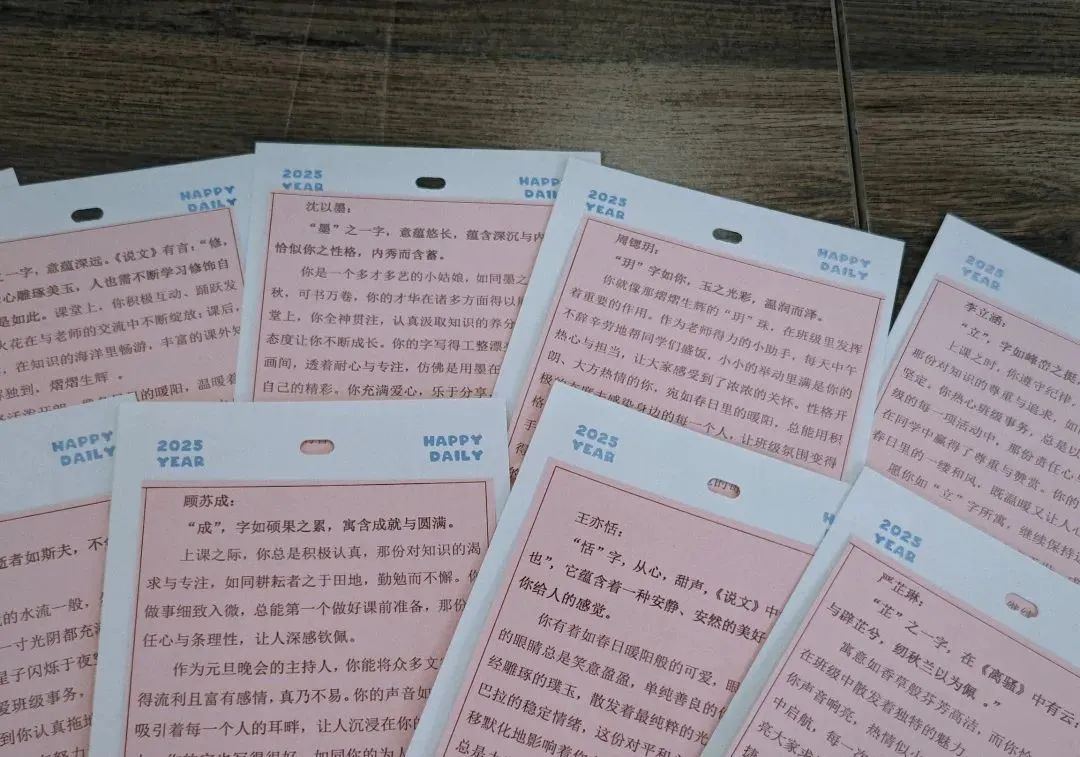 HAPPY
DAILY
一字，意蕴深远。《说文》有言：“修，
心雕琢美玉，人也需不断学习修饰自
是如此。课堂上，你积极互动、踊跃发
火花在与老师的交流中不断绽放；课后，
，在知识的海洋里畅游，丰富的课外知
界独到，熠熠生辉。
的暖阳，温暖着
2025
YEAR
HAPPY
DAIL
沈以墨：
“墨”之一字，意蕴悠长，蕴含深沉与内
恰似你之性格，内秀而含蓄。
你是一个多才多艺的小姑娘，如同墨之
秋，可书万卷，你的才华在诸多方面得以
堂上，你全神贯注，认真汲取知识的养分
态度让你不断成长。你的字写得工整漂
画间，透着耐心与专注，仿佛是用墨在
自己的精彩。你充满爱心，乐于分享
2025
YEAR
HAPPY
DAILY
周锶玥：
“玥”字如你，玉之光彩，温润而泽。
你就像那熠熠生辉的“玥”珠，在班级里发挥
着重要的作用。作为老师得力的小助手，每天中午
不辞辛劳地帮同学们盛饭，小小的举动里满是你的
热心与担当，让大家感受到了浓浓的关怀。性格开
朗、大方热情的你，宛如春日里的暖阳，总能用积
极的态度去感染身边的每一个人，让班级氛围变得
格
手
得
2025
YEAR
李立涵：
“立”，字如峰峦之挺
上课之时，你遵守纪律，
那份对知识的尊重与追求，如
坚定，你热心班级事务，总是以
级的每一项活动中，那份责任心
在同学中赢得了尊重与赞赏。你的
春日里的一缕和风，既温暖又让人心
愿你如“立”字所寓，继续保持
HAPPY
DAILY
逝者如斯夫，不
的水流一般，
一寸光阴都充满
星子闪烁于夜空
爱班级事务，
到你认真拖地
2025
YEAR
HAPPY
DAILY
顾苏成：
“成”，字如硕果之累，寓含成就与圆满。
上课之际，你总是积极认真，那份对知识的渴
求与专注，如同耕耘者之于田地，勤勉而不懈。你
做事细致入微，总能第一个做好课前准备，那份
任心与条理性，让人深感钦佩。
作为元旦晚会的主持人，你能将众多文
得流利且富有感情，真乃不易。你的声音如
吸引着每一个人的耳畔，让人沉浸在你的
你的字也写得很好，如同你的为人
2025
YEAR
王亦恬：
“恬”字，从心，甜声，《说文》中
也”，它蕴含着一种安静、安然的美好
你给人的感觉。
你有着如春日暖阳般的可爱，眼
的眼睛总是笑意盈盈，单纯善良的你
经雕琢的璞玉，散发着最纯粹的光
巴拉的稳定情绪，这份对平和
移默化地影响着你
总是
2025
YEAR
严芷琳：
“芷”之一字，在《离骚》中有云
与辟芷兮，纫秋兰以为佩。”
寓意如香草般芬芳高洁，而你恰
在班级中散发着独特的魅力
你声音响亮，热情似
中启航，每一次
亮大家求